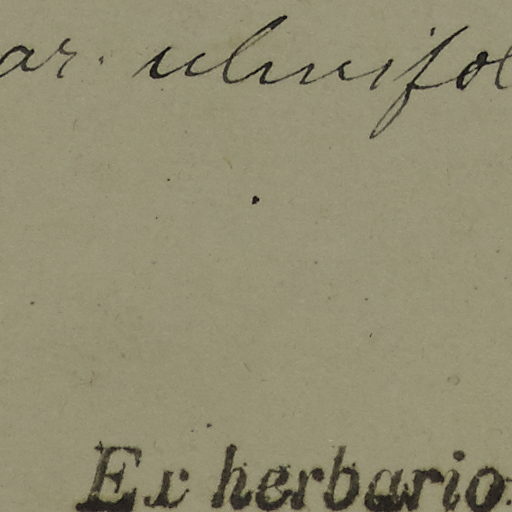 ar. ulmifol
Ex herbario